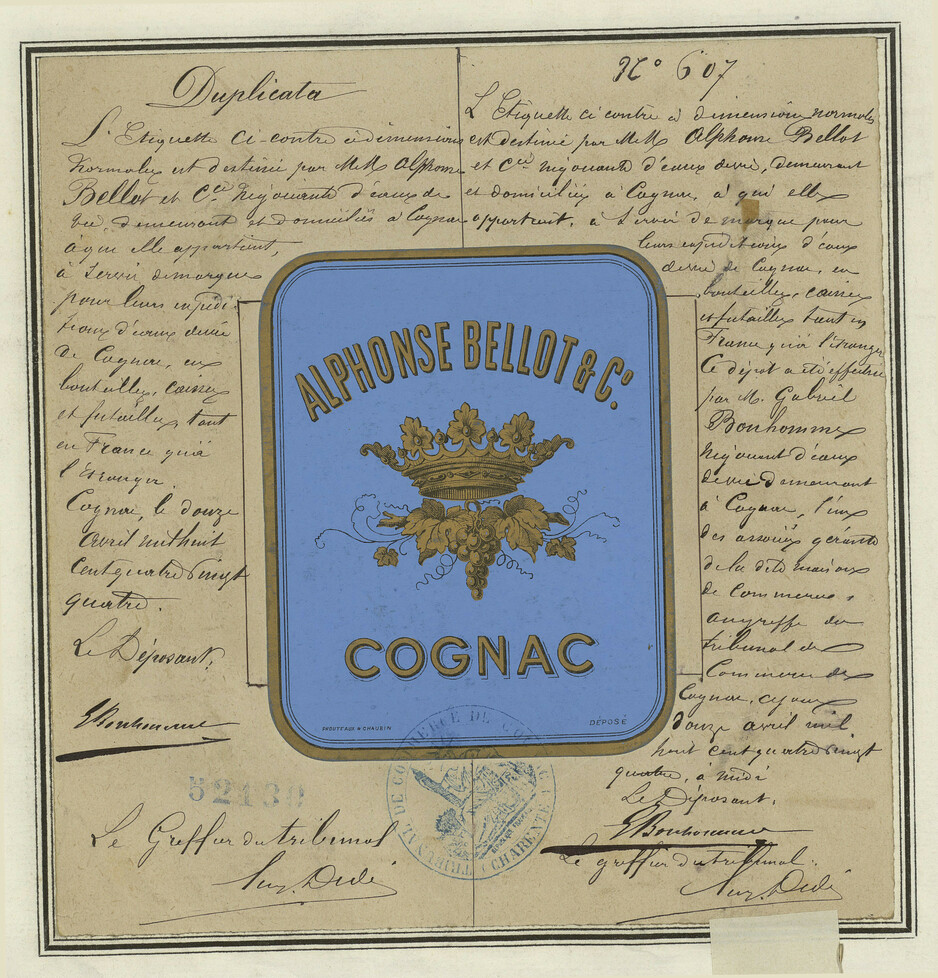 Duplicata
L'Etiquette ci-contre à dimensions
Normales est destinée par MM. Alphonse
Bellot et Cie Négociants d'eaux de
vie, demeurant et domiciliés à Cognac
à qui elle appartient,
à servir de marque
pour leurs expédi-
tions d'eaux devie
de Cognac, en
bouteilles, caisses
et futailles, tant
en France qu'à
l'Etranger.
Cognac, le douze
Avril mil huit
cent quatre vingt
quatre.
Le Déposant,
GBonhomme
52130
Le Greffier du tribunal
N° 607
L'Etiquette ci contre à dimensions normales
est destinée par MM. Alphonse Bellot
et Cie négociants d'eaux devie, demeurant
et domiciliés à Cognac, à qui elle
appartient, à servir de marque pour
leurs expéditions d'eaux
devie de Cognac, en
bouteilles, caisses
et futailles tant en
France qu'à l'étranger
Ce dépot a été effectué
par M. Gabriel
Bonhomme
Négociant d'eaux
devie demeurant
à Cognac, l'un
des associés gérants
de la dite maison
de Commerce,
au greffe du
tribunal de
Commerce de
Cognac, ce jour
douze avril mil
huit cent quatre vingt
quatre, à midi
Le Déposant,
GBonhomme
Le greffier du tribunal.
ALPHONSE BELLOT & Co.
COGNAC
CHAUBIN
DÉPOSÉ
TRIBUNAL DE COMMERCE DE COGNAC (CHARENTE)